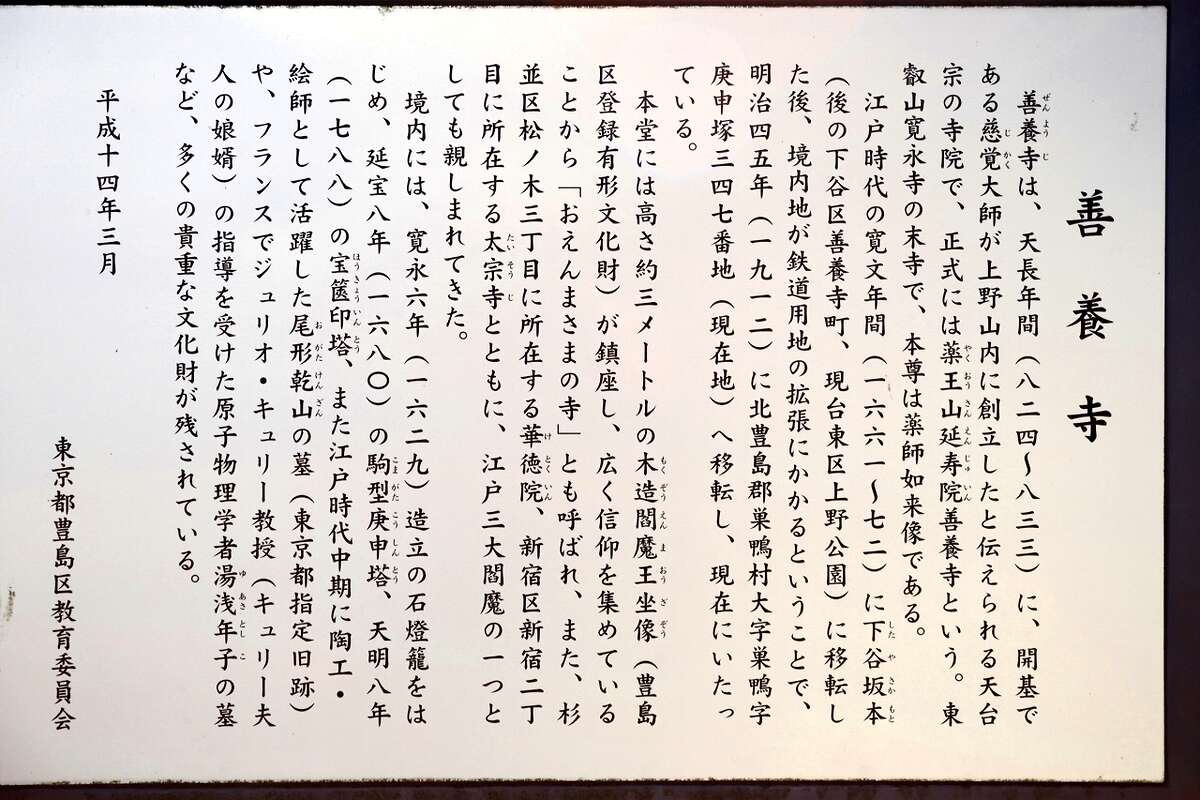 善養寺
善養寺は、天長年間（八二四～八三三）に、開基で
ある慈覚大師が上野山内に創立したと伝えられる天台
宗の寺院で、正式には薬王山延寿院善養寺という。東
叡山寛永寺の末寺で、本尊は薬師如来像である。
江戸時代の寛文年間（一六六一～七二）に下谷坂本
（後の下谷区善養寺町、現台東区上野公園）に移転し
た後、境内地が鉄道用地の拡張にかかるということで、
明治四五年（一九一二）に北豊島郡巣鴨村大字巣鴨字
庚申塚三四七番地（現在地）へ移転し、現在にいたっ
ている。
本堂には高さ約三メートルの木造閻魔王坐像（豊島
区登録有形文化財）が鎮座し、広く信仰を集めている
ことから「おえんまさまの寺」とも呼ばれ、また、杉
並区松ノ木三丁目に所在する華徳院、新宿区新宿二丁
目に所在する太宗寺とともに、江戸三大閻魔の一つと
しても親しまれてきた。
境内には、寛永六年（一六二九）造立の石燈籠をは
じめ、延宝八年（一六八〇）の駒型庚申塔、天明八年
（一七八八）の宝篋印塔、また江戸時代中期に陶工・
絵師として活躍した尾形乾山の墓（東京都指定旧跡）
や、フランスでジュリオ・キュリー教授（キュリー夫
人の娘婿）の指導を受けた原子物理学者湯浅年子の墓
など、多くの貴重な文化財が残されている。
平成十四年三月
東京都豊島区教育委員会